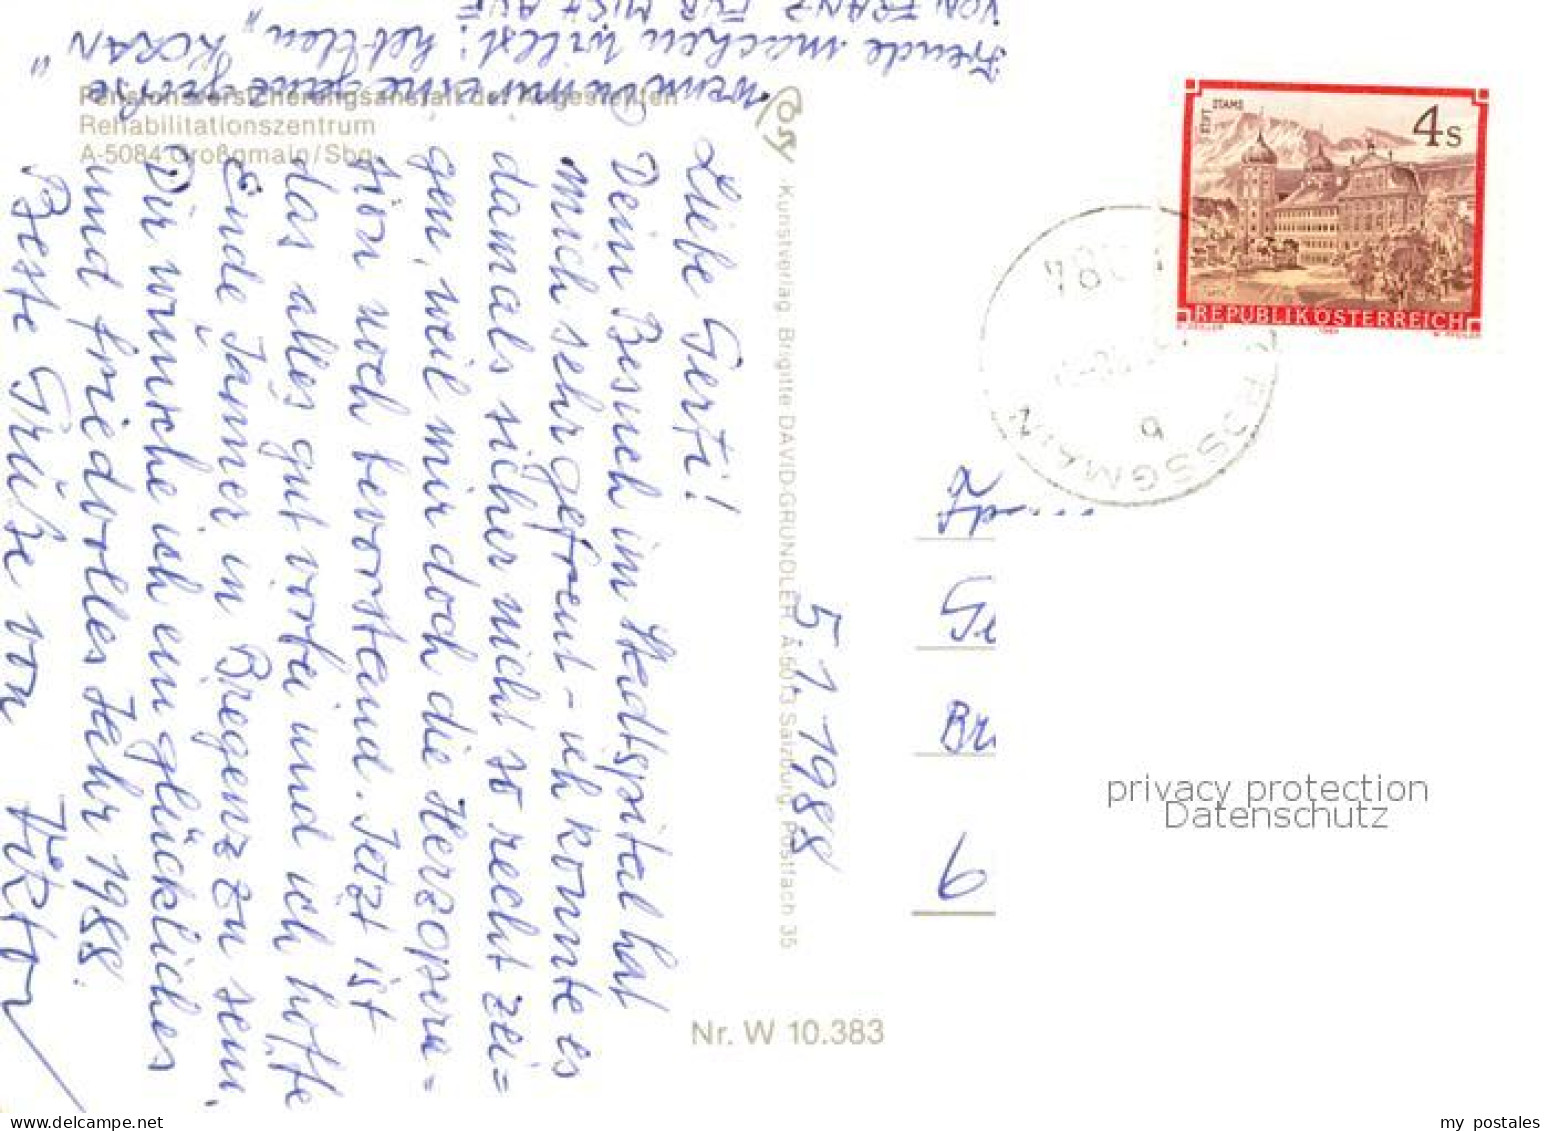 Pensionsversicherungsanstalt der Angestellten
Rehabilitationszentrum
A-5084 Großgmain/Sbg.
5.1.1988
Liebe Gerti!
Dein Besuch im Stadtspital hat
mich sehr gefreut - ich konnte es
damals sicher nicht so recht zei=
gen, weil mir doch die Herzopera=
tion noch bevorstand. Jetzt ist
das alles gut vorbei und ich hoffe
Ende Jänner in Bregenz zu sein.
Dir wünsche ich ein glückliches
und friedvolles Jahr 1988.
Beste Grüße von Viktor
wenn Du mir eine ganz große
Freude machen willst:
VON FRANZ FÜR MICH AUF
Kunstverlag Brigitte DAVID-GRUNDLER, A-5013 Salzburg, Postfach 35
Nr. W 10.383
STIFT STAMS
4 S
REPUBLIK ÖSTERREICH
Br
6
privacy protection
Datenschutz
my postales